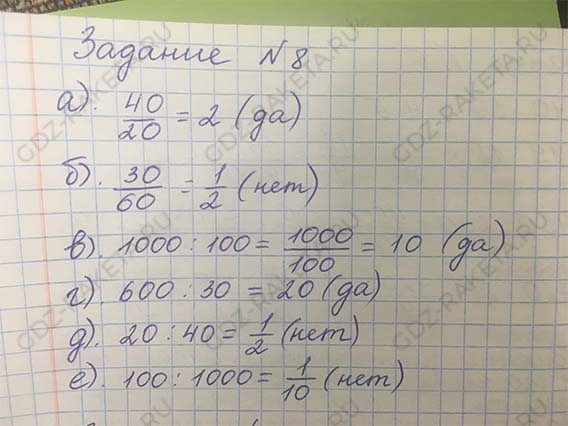 Задание №8
а). 40/20 = 2 (да)
б). 30/60 = 1/2 (нет)
в). 1000 : 100 = 1000/100 = 10 (да)
г). 600 : 30 = 20 (да)
д). 20 : 40 = 1/2 (нет)
е). 100 : 1000 = 1/10 (нет)
GDZ-RAKETA.RU